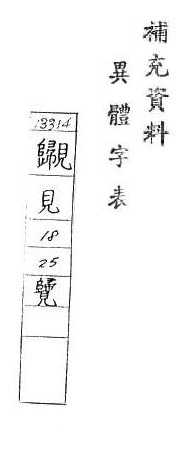 補充資料
異體字表
13314
見
18
25
覽